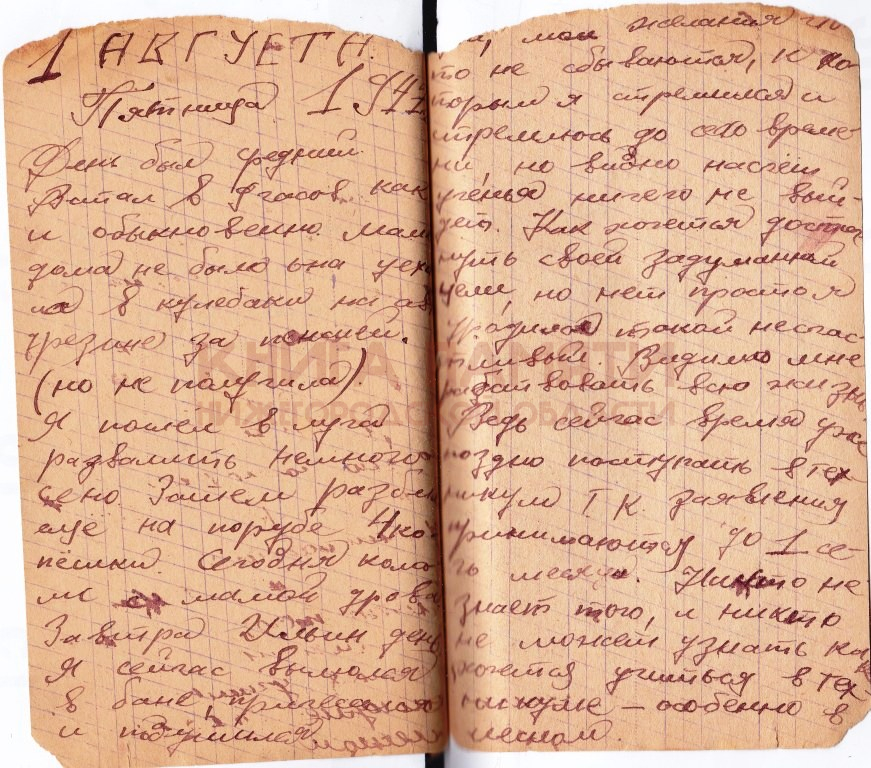 1 АВГУСТА.
Пятница 1947
День был средний.
Встал в 9 часов как
и обыкновенно. Мам
дома не было она уех
ла в кулебаки на ав
трезине за пенсией.
(но не получила).
Я пошел в луга
развалить немного
сено. Затем разбил
ещё на порубе 4 ко
пёшки. Сегодня коло
ли с мамой дрова
Завтра Ильин день
Я сейчас вымылся
в бане,
и
мои желания что
то не сбываются, к ко
торым я стремился и
стремлюсь до сего време-
ни, но видно насчёт
ученья ничего не вый-
дет. Как хочется достиг
нуть своей задуманной
цели, но нет просто я
уродился такой несчас-
тливый. Видимо мне
всю жизнь
Ведь сейчас время уже
поздно поступать в тех
никум Т.К. заявления
принимаются до 1 се-
го месяца. Никто не
знает того, и никто
не может узнать как
хочется учиться в тех
никуме – особенно в
лесном.
КНИГА ПАМЯТИ
НИЖЕГОРОДСКОЙ ОБЛАСТИ